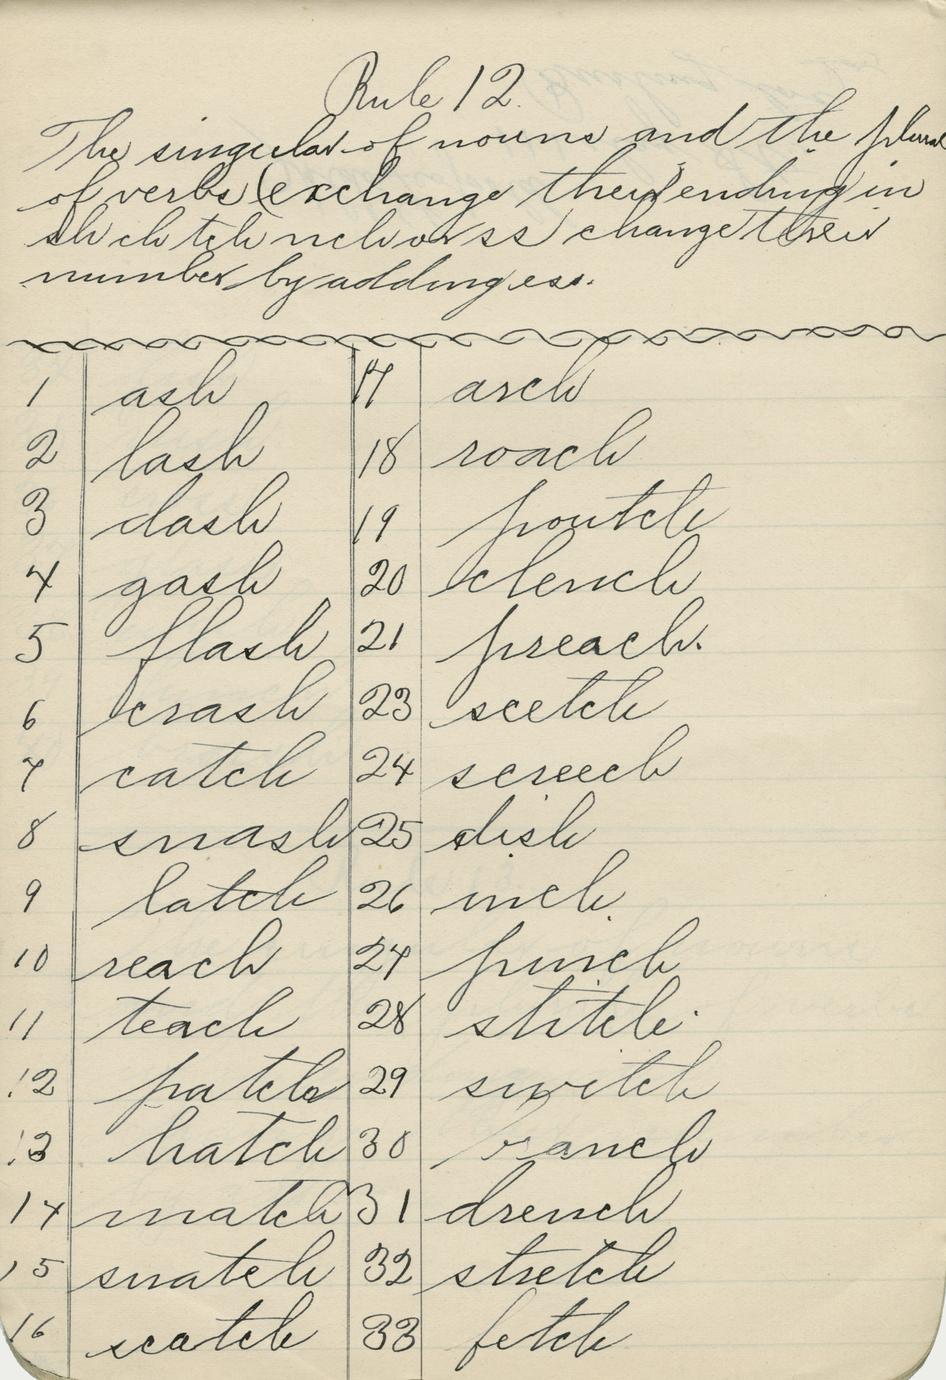 Rule 12.
The singular of nouns and the plural
of verbs (exchange their) ending in
sh ch tch nch or ss change their
number by adding es.
1 ash
2 lash
3 dash
4 gash
5 flash
6 crash
7 catch
8 smash
9 latch
10 reach
11 teach
12 patch
13 hatch
14 match
15 snatch
16 scatch
17 arch
18 roach
19 poutch
20 clench
21 preach.
23 scetch
24 screech
25 dish
26 inch
27 pinch
28 stitch
29 switch
30 ranch
31 drench
32 stretch
33 fetch